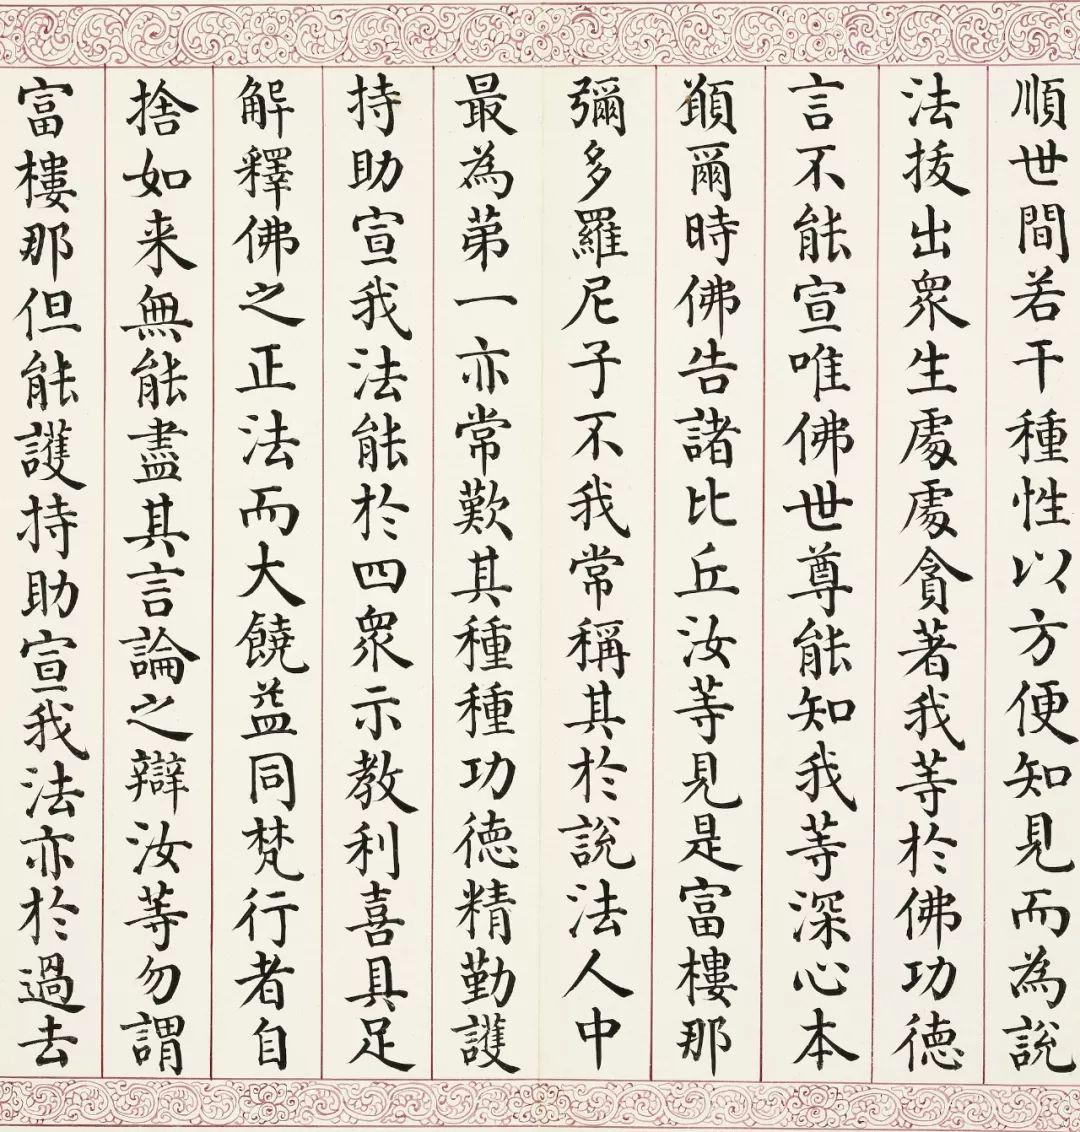 順世間若干種性以方便知見而為說
法拔出眾生處處貪著我等於佛功德
言不能宣唯佛世尊能知我等深心本
願爾時佛告諸比丘汝等見是富樓那
彌多羅尼子不我常稱其於說法人中
最為第一亦常歎其種種功德精勤護
持助宣我法能於四眾示教利喜具足
解釋佛之正法而大饒益同梵行者自
捨如来無能盡其言論之辯汝等勿謂
富樓那但能護持助宣我法亦於過去